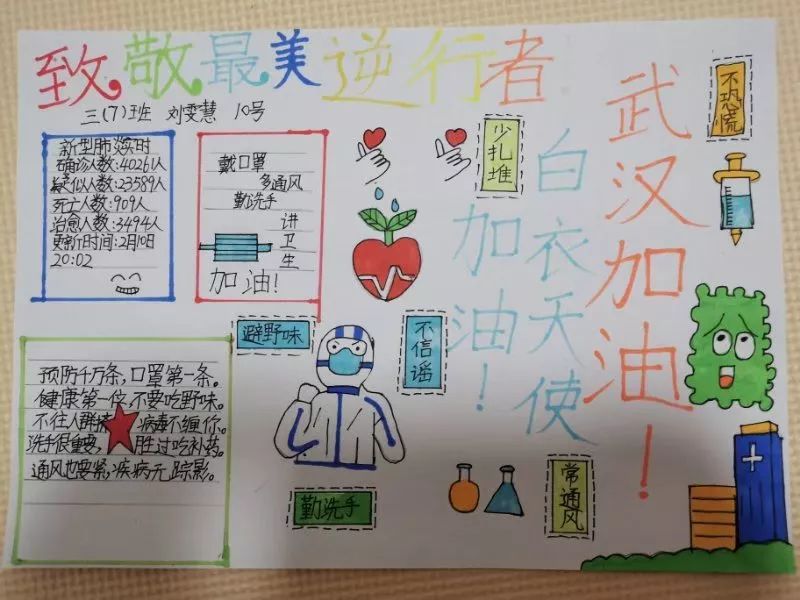 致敬最美逆行者
三(7)班 刘雯慧 10号
新型肺炎实时
确诊人数:40261人
疑似人数:23589人
死亡人数:909人
治愈人数:3494人
更新时间:2月10日
20:02
戴口罩
多通风
勤洗手
讲卫生
加油!
少扎堆
不恐慌
武汉加油!
白衣天使
加油!
避野味
不信谣
预防千万条,口罩第一条。
健康第一位,不要吃野味。
不往人群挤 病毒不缠你。
洗手很重要, 胜过吃补药。
通风也要紧,疾病无踪影。
勤洗手
常通风